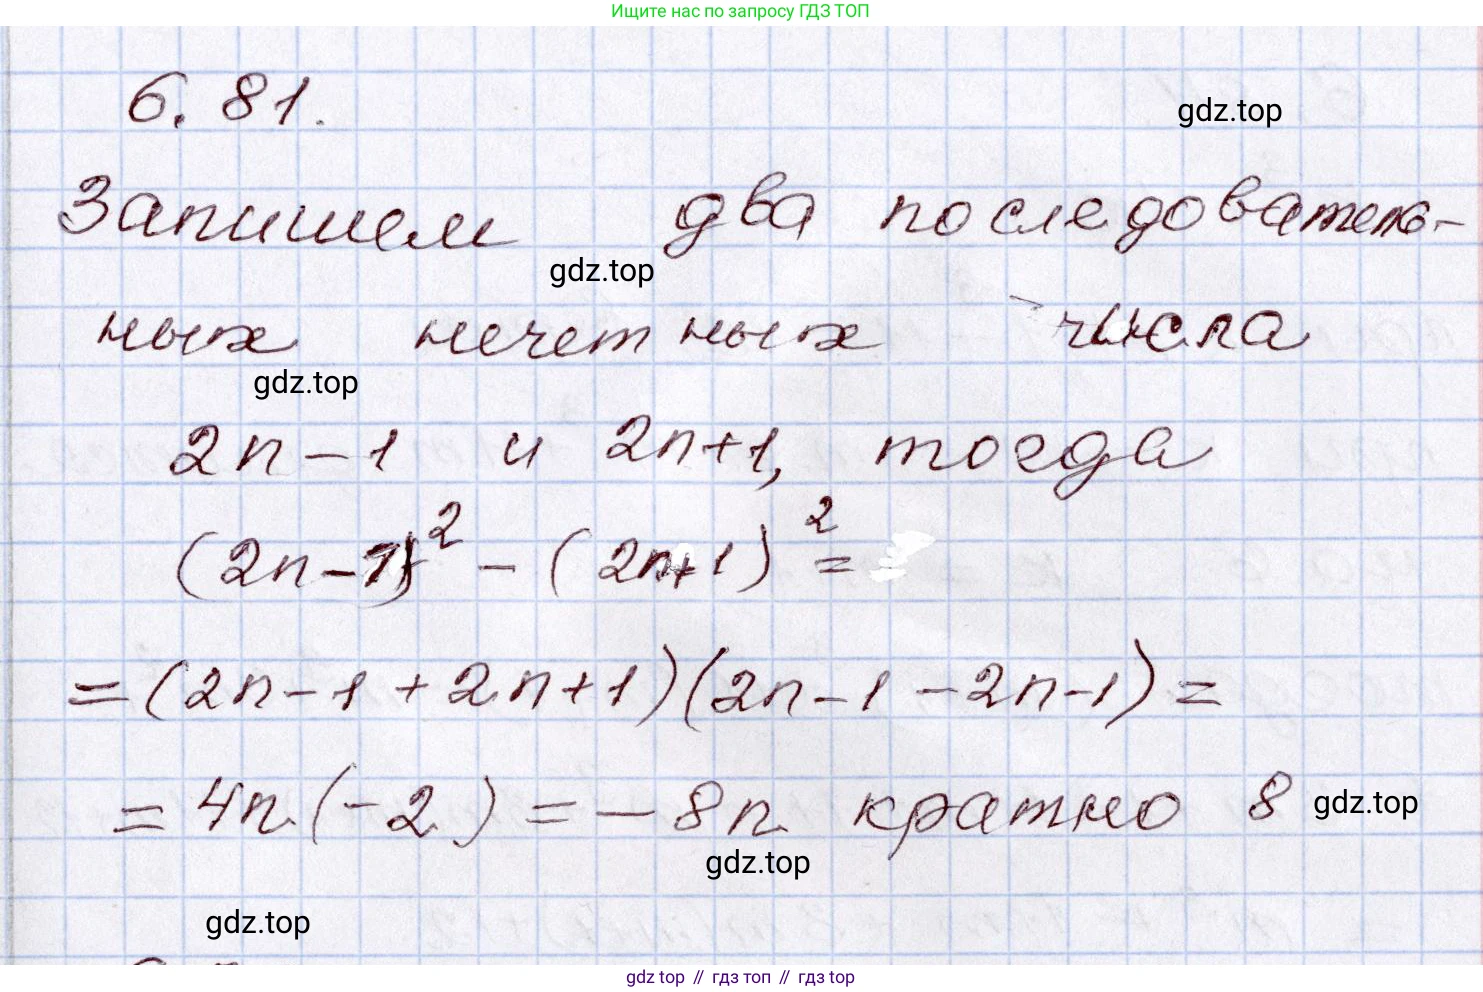 Ищите нас по запросу ГДЗ ТОП
6.81.
gdz.top
Запишем два последователь-
gdz.top
ных нечетных числа
gdz.top
2n-1 и 2n+1, тогда
(2n-1)² - (2n+1)² =
= (2n-1+2n+1)(2n-1-2n-1) =
= 4n·(-2) = -8n кратно 8
gdz.top
gdz.top
gdz.top
gdz top // гдз топ // гдз top